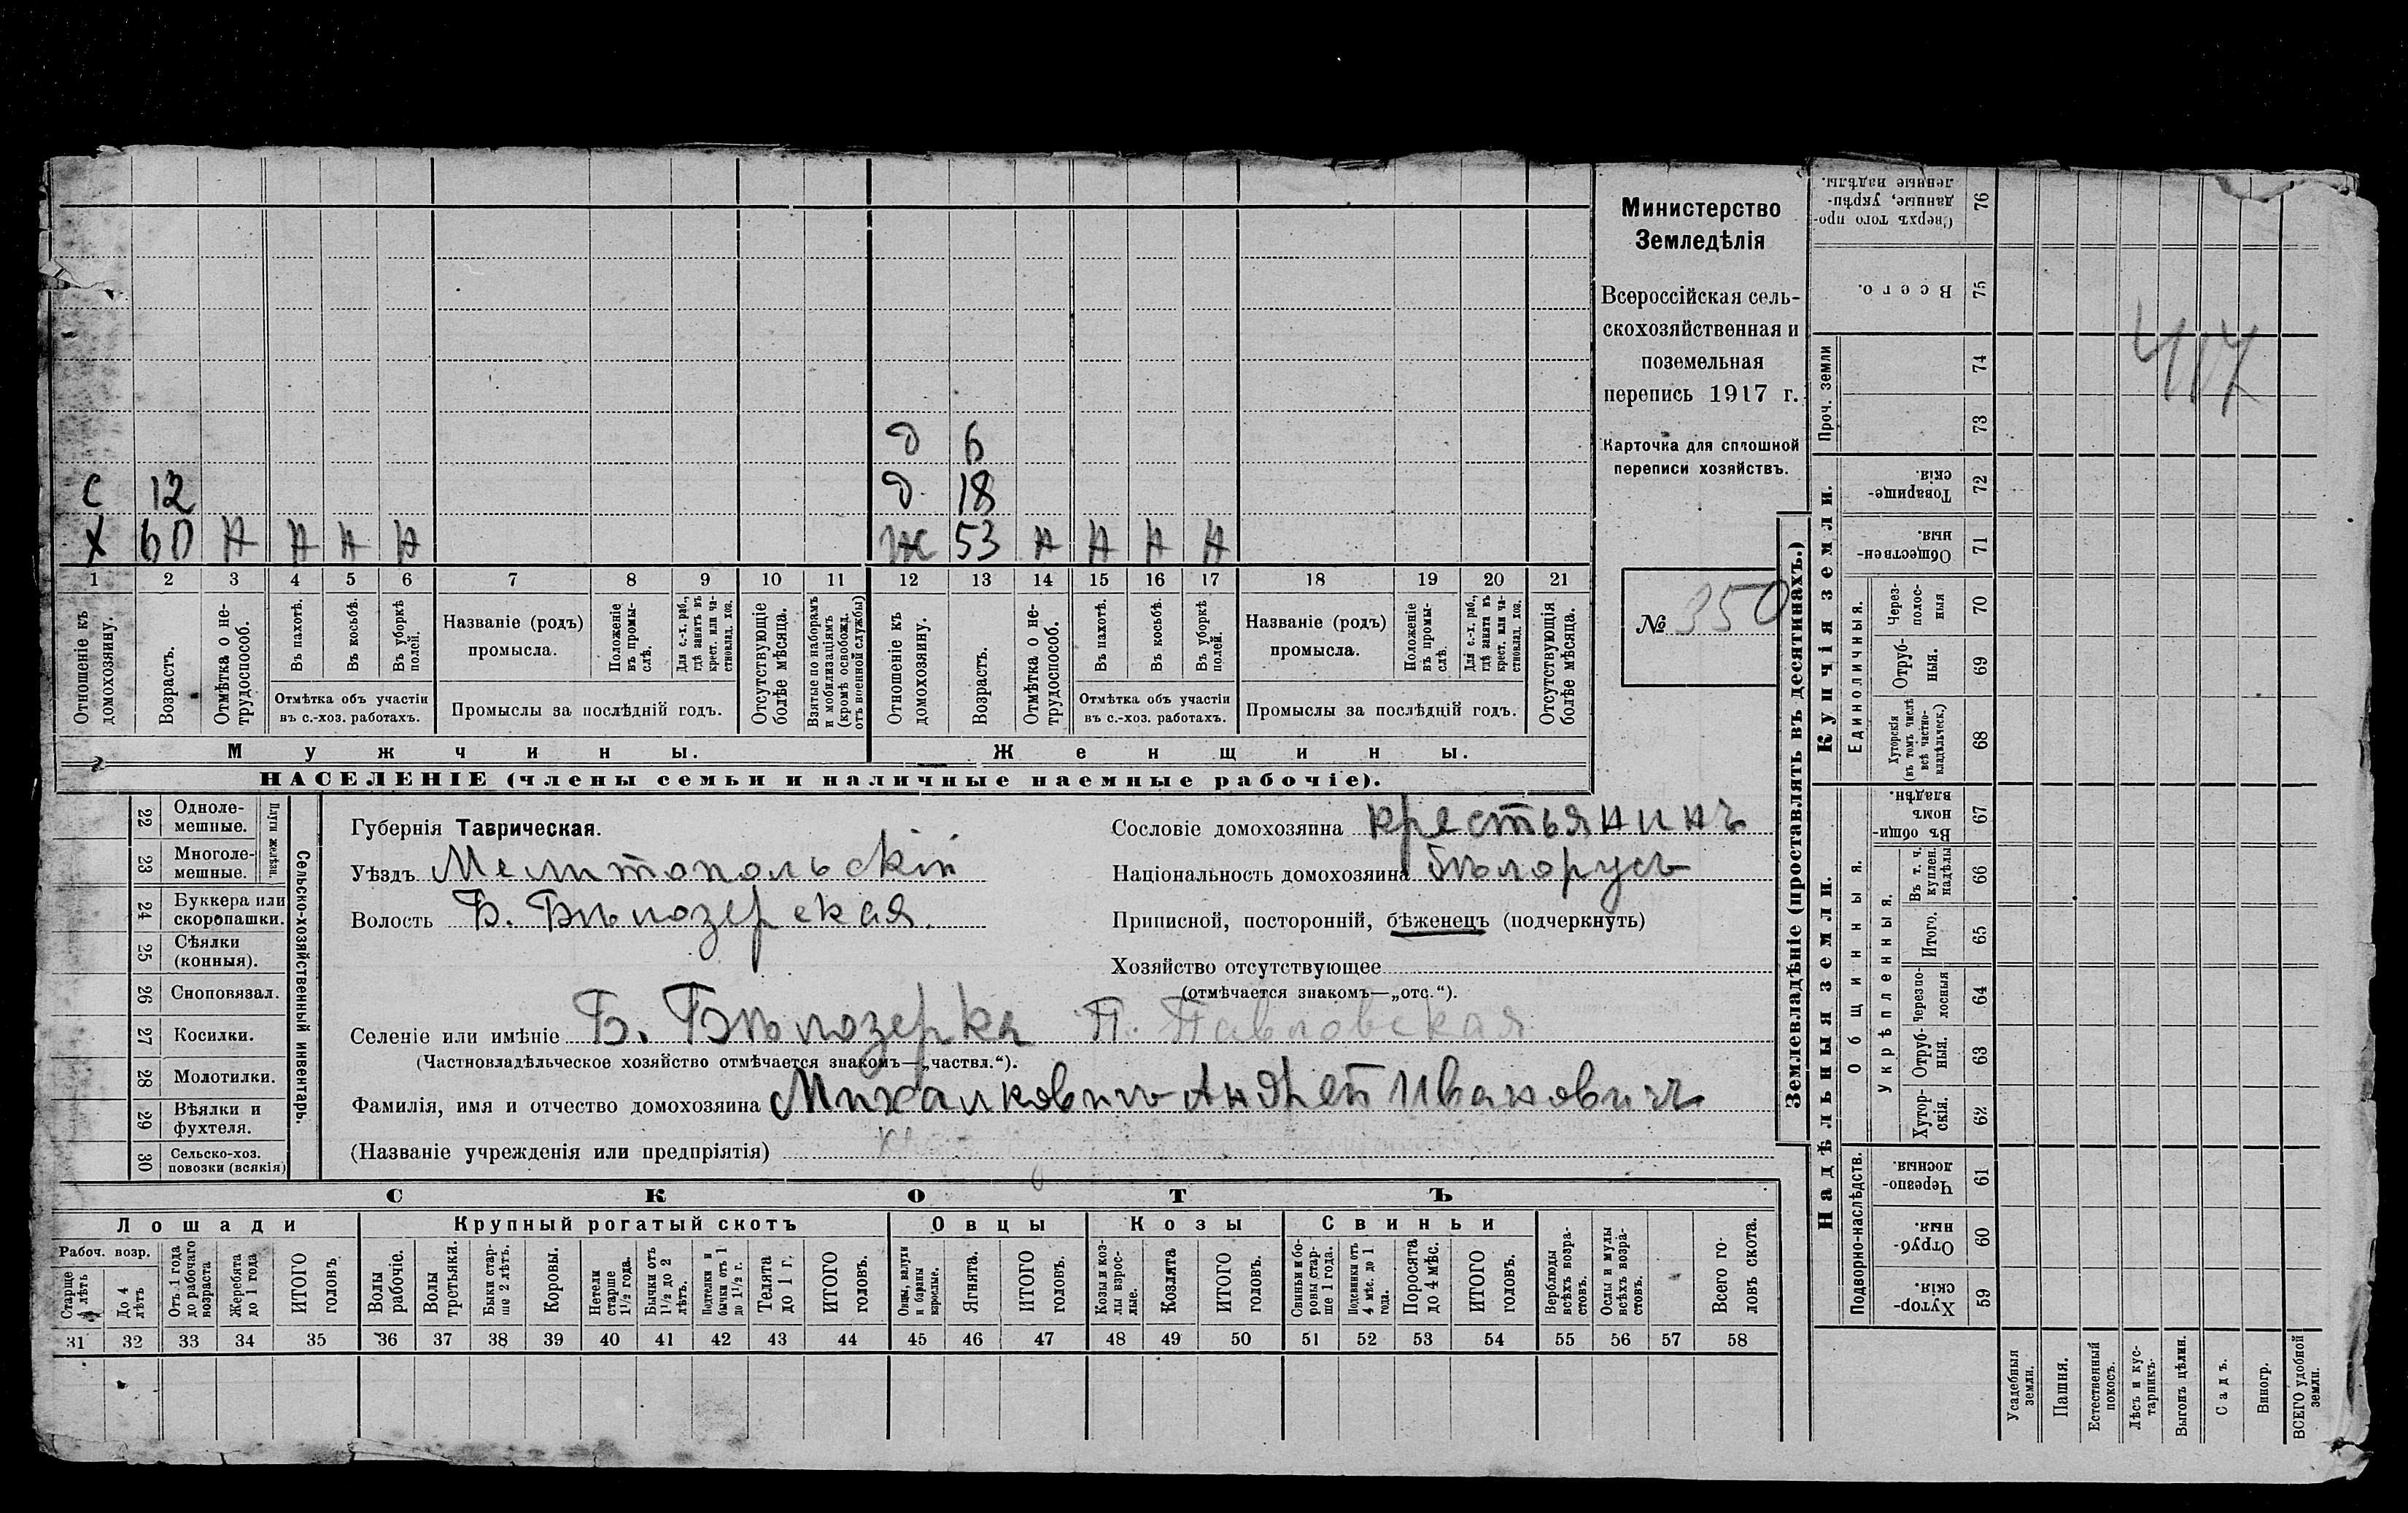 Министерство
Земледѣлія
Всероссійская сель-
скохозяйственная и
поземельная
перепись 1917 г.
Карточка для сплошной
переписи хозяйствъ.
№ 350
д 6
с 12 д 18
х 60 н н н н ж 53 н н н н
1 2 3 4 5 6 7 8 9 10 11 12 13 14 15 16 17 18 19 20 21
Отношеніе къ домохозяину.
Возрастъ.
Отмѣтка о не-трудоспособ.
Въ пахотѣ.
Въ косьбѣ.
Въ уборкѣ полей.
Отмѣтка объ участіи
въ с.-хоз. работахъ.
Названіе (родъ)
промысла.
Положеніе въ промы-слѣ.
Для с.-х. раб., гдѣ занятъ въ крест. или ча-стновлад. хоз.
Промыслы за послѣдній годъ.
Отсутствующіе болѣе мѣсяца.
Взятые по наборамъ и мобилизаціямъ (кромѣ освобожд. отъ военной службы)
Отношеніе къ домохозяину.
Возрастъ.
Отмѣтка о не-трудоспособ.
Въ пахотѣ.
Въ косьбѣ.
Въ уборкѣ полей.
Отмѣтка объ участіи
въ с.-хоз. работахъ.
Названіе (родъ)
промысла.
Положеніе въ промы-слѣ.
Для с.-х. раб., гдѣ занята въ крест. или ча-стновлад. хоз.
Промыслы за послѣдній годъ.
Отсутствующія болѣе мѣсяца.
Мужчины. Женщины.
НАСЕЛЕНІЕ (члены семьи и наличные наемные рабочіе).
Сельско-хозяйственный инвентарь.
Плуги желѣзн.
22 Одноле-мешные.
23 Многоле-мешные.
24 Буккера или скоропашки.
25 Сѣялки (конныя).
26 Сноповязал.
27 Косилки.
28 Молотилки.
29 Вѣялки и фухтеля.
30 Сельско-хоз. повозки (всякія)
Губернія Таврическая.
Уѣздъ Мелитопольскій
Волость Б. Бѣлозерская.
Сословіе домохозяина крестьянинъ
Національность домохозяина бѣлорусъ
Приписной, посторонній, бѣженецъ (подчеркнуть)
Хозяйство отсутствующее
(отмѣчается знакомъ—„отс.“).
Селеніе или имѣніе Б. Бѣлозерка П. Павловская
(Частновладѣльческое хозяйство отмѣчается знакомъ—„частвл.“).
Фамилія, имя и отчество домохозяина Михалковичъ Андрей Ивановичъ
(Названіе учрежденія или предпріятія)
СКОТЪ
Лошади Крупный рогатый скотъ Овцы Козы Свиньи
Рабоч. возр.
Старше 4 лѣтъ
До 4 лѣтъ
Отъ 1 года до рабочаго возраста
Жеребята до 1 года
ИТОГО головъ
Волы рабочіе.
Волы третьяки.
Быки стар-ше 2 лѣтъ.
Коровы.
Нетели старше 1½ года.
Бычки отъ 1½ до 2 лѣтъ.
Подтелки и бычки отъ 1 до 1½ г.
Телята до 1 г.
ИТОГО головъ.
Овцы, валухи и бараны взрослые.
Ягнята.
ИТОГО головъ.
Козы и коз-лы взрос-лые.
Козлята
ИТОГО головъ.
Свиньи и бо-ровы стар-ше 1 года.
Подсвинки отъ 4 мѣс. до 1 года.
Поросята до 4 мѣс.
ИТОГО головъ.
Верблюды всѣхъ возра-стовъ.
Ослы и мулы всѣхъ возра-стовъ.
Всего го-ловъ скота.
31 32 33 34 35 36 37 38 39 40 41 42 43 44 45 46 47 48 49 50 51 52 53 54 55 56 57 58
Землевладѣніе (проставлять въ десятинахъ.)
Надѣльныя земли. Купчія земли. Проч. земли
Подворно-наслѣдств.
Общинныя.
Укрѣпленныя.
Единоличныя.
Сверхъ того про-данные, укрѣп-ленные надѣлы. 76
Всего. 75
74
73
Товарище-скія. 72
Обществен-ныя. 71
Через-полос-ныя 70
Отруб-ныя. 69
Хуторскія (въ томъ числѣ всѣ частно-владѣльческ.) 68
Въ общи-номъ владѣн. 67
Въ т. ч. куплен. надѣлы 66
Итого. 65
Черезпо-лосныя 64
Отруб-ныя. 63
Хутор-скія. 62
Черезпо-лосныя. 61
Отруб-ныя. 60
Хутор-скія. 59
Усадебныя земли.
Пашня.
Естественный покосъ.
Лѣсъ и кус-тарникъ.
Выгонъ цѣлин.
Садъ.
Виногр.
ВСЕГО удобной земли.